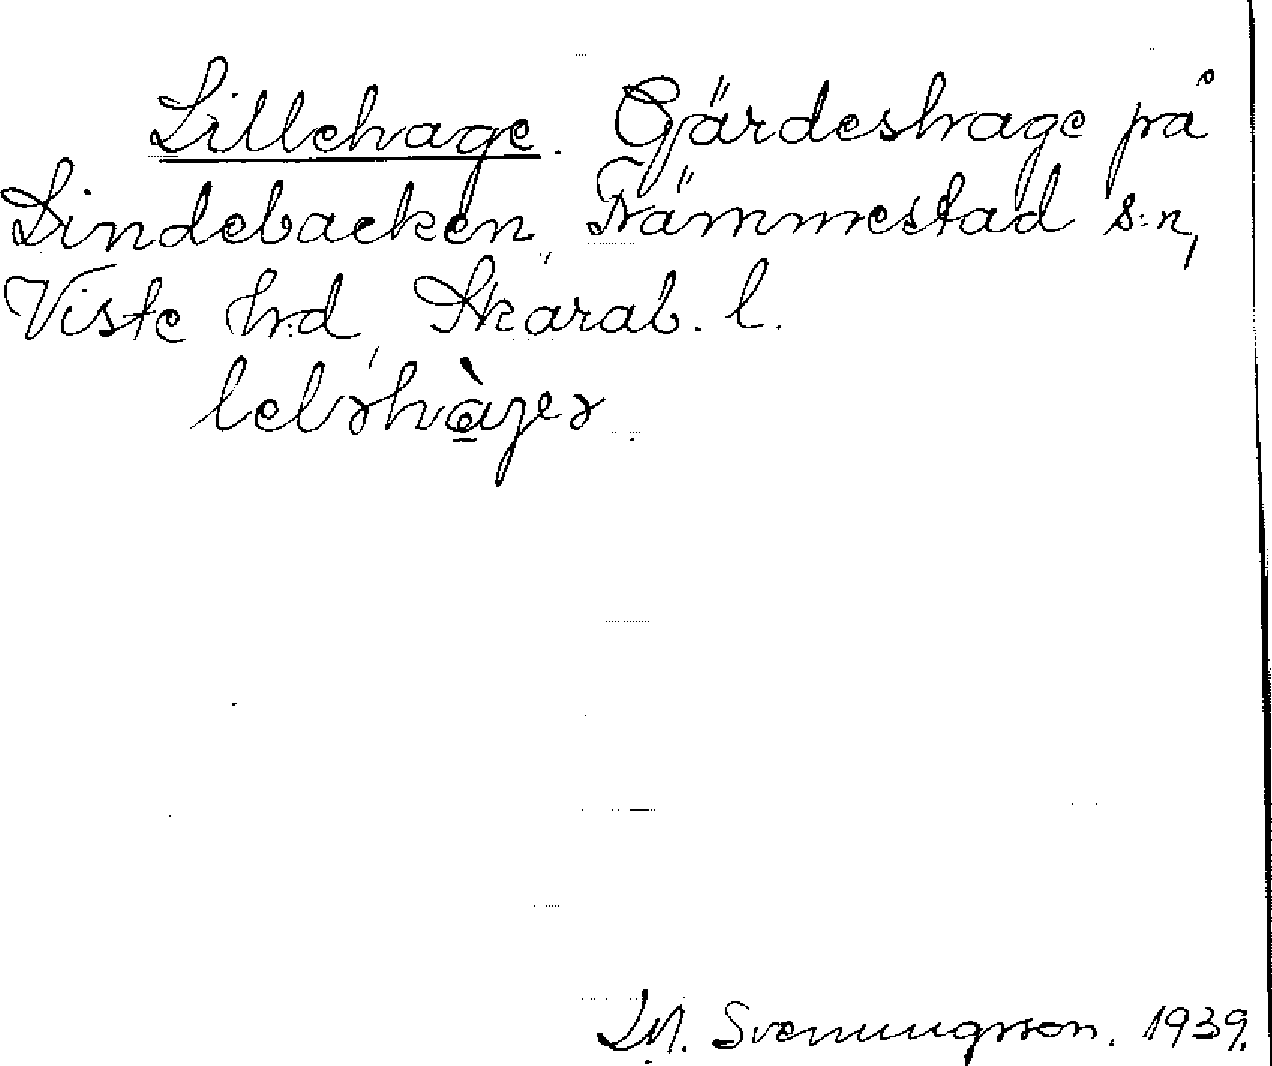 Lillehage. Gärdeshage på
Lindebacken, Främmestad s:n,
Viste h:d, Skarab. l.
lelɤhàɡeɤ.
Svenningsson. 1939.